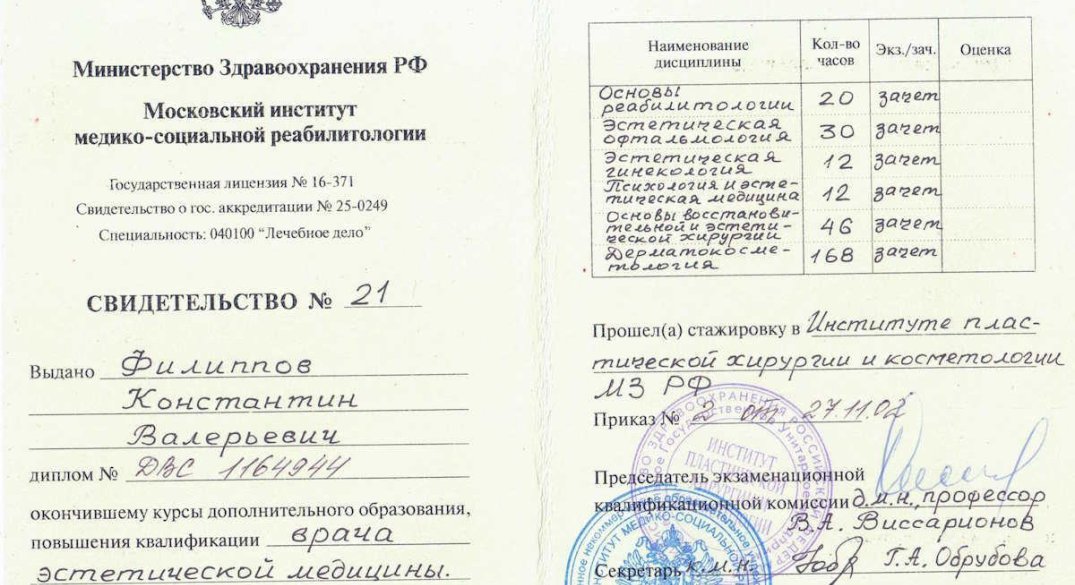 Министерство Здравоохранения РФ
Московский институт
медико-социальной реабилитологии
Государственная лицензия № 16-371
Свидетельство о гос. аккредитации № 25-0249
Специальность: 040100 “Лечебное дело”
СВИДЕТЕЛЬСТВО № 21
Выдано Филиппов
Константин
Валерьевич
диплом № ДВС 1164944
окончившему курсы дополнительного образования,
повышения квалификации врача
эстетической медицины.
Наименование дисциплины Кол-во часов Экз./зач. Оценка
Основы
реабилитологии 20 зачет
Эстетическая
офтальмология 30 зачет
Эстетическая
гинекология 12 зачет
Психология и эсте-
тическая медицина 12 зачет
Основы восстанови-
тельной и эстети-
ческой хирургии 46 зачет
Дерматокосме-
тология 168 зачет
Прошел(а) стажировку в Институте плас-
тической хирургии и косметологии
МЗ РФ
Приказ № 2 от 27.11.02
Председатель экзаменационной
квалификационной комиссии д.м.н., профессор
В.А. Виссарионов
Секретарь к.м.н. Г.А. Обрубова
ИНСТИТУТ
ПЛАСТИЧЕСКОЙ
ХИРУРГИИ